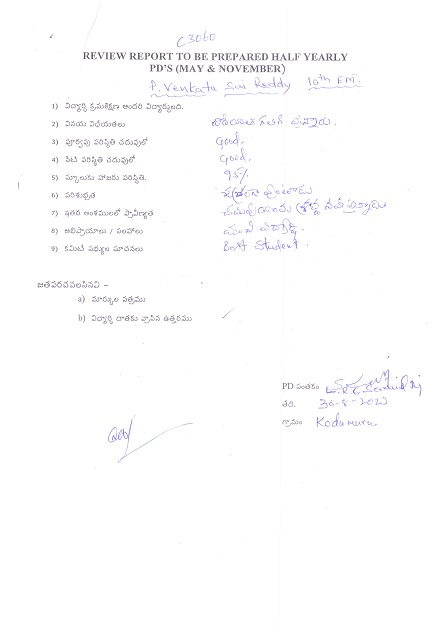 C3060
REVIEW REPORT TO BE PREPARED HALF YEARLY
PD'S (MAY & NOVEMBER)
P. Venkata Sai Reddy 10th EM.
1) విద్యార్థి క్రమశిక్షణ అందరి విద్యార్థులది.
2) వినయ విధేయతలు కలిగి వున్నారు.
3) పూర్వపు పరిస్థితి చదువులో Good.
4) నేటి పరిస్థితి చదువులో Good.
5) స్కూలుకు హాజరు పరిస్థితి. 95%
6) పరిశుభ్రత శుభ్రంగా వుంటాడు
7) ఇతర అంశములలో ప్రావీణ్యత చదువుయందు శ్రద్ధ
8) అభిప్రాయాలు / సలహాలు మంచి విద్యార్థి.
9) కమిటీ సభ్యుల సూచనలు Best Student.
జతపరచవలసినవి –
a) మార్కుల పత్రము
b) విద్యార్థి దాతకు వ్రాసిన ఉత్తరము
PD సంతకం
తేది. 30-8-2022
గ్రామం Kodumuru